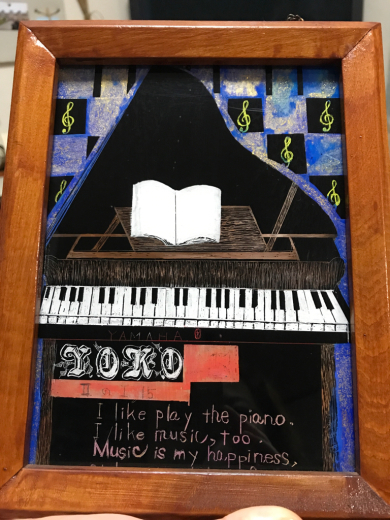 YAMAHA
YOKO
I like play the piano.
I like music, too.
Music is my happiness,